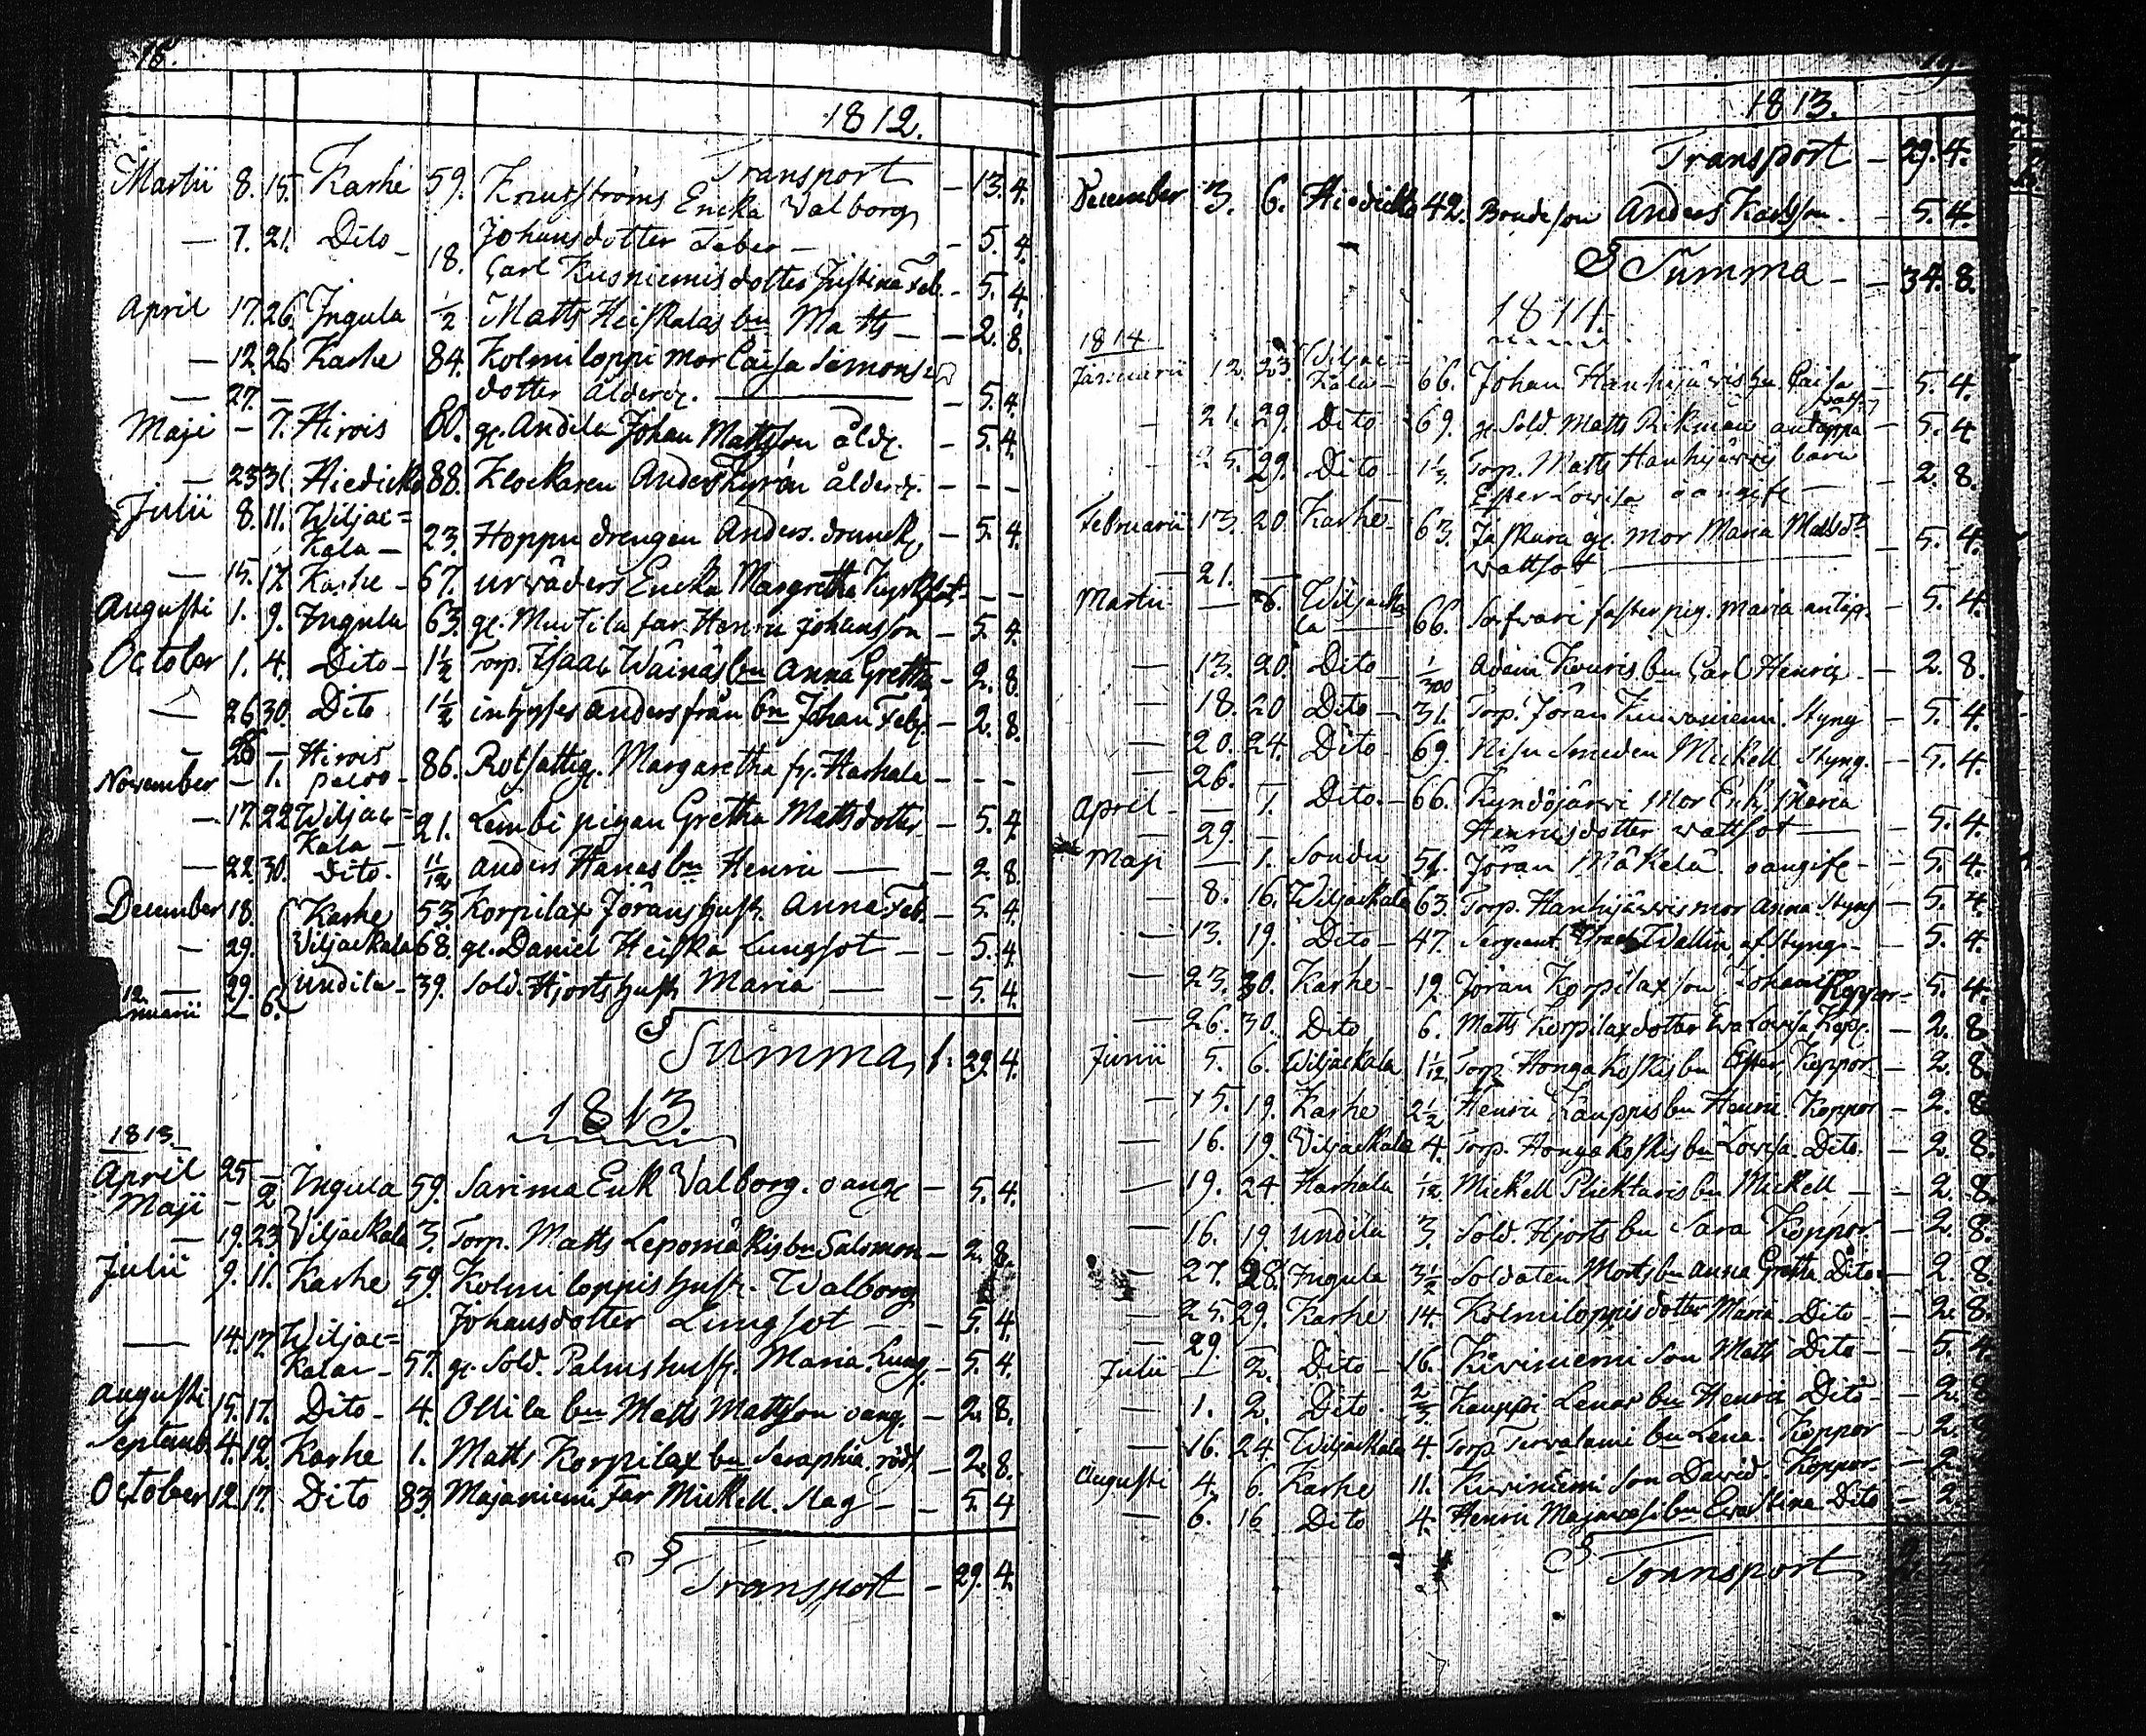 18.
1812.
Transport - 13. 4.
Martii 8. 15. Karhe 59. Knutströms Encka Valborg
Johansdotter Feber - - 5. 4.
- 7. 21. Dito - 18. Carl Kusniemis dotter Justina Feb. - 5. 4.
April 17. 26. Ingula 1/2 Matts Heiskalas bn Matts - - 2. 8.
- 12. 26. Karhe 84. Kolmiloppi mor Caisa Simons
- 27. - dotter ålderd. - 5. 4.
Maji - 7. Hirvis 80. gl. Andila Johan Mattsson åld. - 5. 4.
- 23 31 Hiedicko 88. Klockaren Anders Kyrén ålderd. - - -
Julii 8. 11. Wiljac=
Kala - 23. Hoppu drengen Anders. drunck. - 5. 4.
- 15. 17. Karhe - 67. urväders Encka Margretha - -
Augusti 1. 9. Ingula 63. gl. Muotila far Henric Johansson - 5. 4.
October 1. 4. Dito - 1 1/2 Torp. Isaac Wäinäs bn Anna Gretha - 2. 8.
- 26 30. Dito 1 1/2 inhyses Anders från bn Johan Feb. - 2. 8.
- 28 - Hirvis
November - 1. paloo - 86. Rotfattig. Margaretha fr. Harhala - - -
- 17. 22 Wiljac=
Kala - 21. Lembi pigan Gretha Mattsdotter - 5. 4.
- 22. 30. Dito. 11/12 Anders Hanas bn Henric - - 2. 8.
December 18. Karhe 53. Korpilax Jörans hust. Anna Feb. - 5. 4.
- 29. Viljackala 68. gl. Daniel Heiska Lungsot - - 5. 4.
- 29. Undila - 39. Sold. Hjorts hust. Maria - - 5. 4.
6.
Summa, 29. 4.
1813.
1813.
April 25 -
Maji - 2 Ingula 59. Sarima Enk Valborg. oang. - 5. 4.
- 19. 23 Viljackala 3. Torp. Matts Lepomäkis bn Salomon - 2. 8.
Julii 9. 11. Karhe 59. Kolmiloppis hust. Walborg
Johansdotter Lungsot - - 5. 4.
- 14. 17. Wiljac=
Kala - 57. gl. Sold. Palms hust. Maria Lung. - 5. 4.
Augusti 15. 17. Dito - 4. Ollila bn Matts Mattsson oang. - 2. 8.
Septemb. 4. 12. Karhe 1. Matts Korpilax bn Seraphia. röds. - 2. 8.
October 12. 17. Dito 83. Majaniemi Far Mickell. Slag - - 5. 4
Transport - 29. 4.
19.
1813.
Transport - 29. 4.
December 3. 6. Hiedicko 42. Bondeson Anders Karlsson. - 5. 4.
Summa - - 34. 8.
1814.
1814
Januarii 12. 23. Viljac=
Kala - 66. Johan Hanhijärvis hu. Caisa - 5. 4.
- 21. 29. Dito 69. gl. Sold. Matts Rikman - 5. 4
- 25. 29. Dito - 1 1/3 Torp. Matts Hanhijärvis barn
Ester Lovisa oangift - - 2. 8.
Februarii 13. 20. Karhe - 63. Jäskara gl. mor Maria Matsdr
- 21. - vattsot - 5. 4.
Martii - 6. Wiljacka
la - 66. piga Maria - 5. 4.
- 13. 20. Dito - 1/300 Adam Kouris bn Carl Henric - 2. 8.
- 18. 20 Dito - 31. Torp. Jöran Styng - 5. 4.
- 20. 24. Dito - 69. Nisu Smeden Mickell Styng. - 5. 4.
- 26. -
April - 1. Dito. - 66. Kyndöjärvi Mor Enk. Maria
Henricsdotter vattsot - 5. 4.
- 29. -
Maji - 1. Soudu 51. Jöran Mäkelä. oangift - 5. 4.
- 8. 16. Wiljackala 63. Torp. Hanhijärvis mor Anna. Styng - 5. 4.
- 13. 19. Dito - 47. Sergeant. Wallin, af Styng - - 5. 4.
- 23. 30. Karhe - 19. Jöran Korpilax son Johan Koppor - 5. 4.
- 26. 30. Dito 6. Matts Korpilax dotter Eva Lovisa Kop. - 2. 8.
Junii 5. 6. Wiljackala 1 1/12 Torp. Hongakoskis bn Ester. Koppor - 2. 8.
- 15. 19. Karhe 2 1/2 Henric Kauppis bn Henric Koppor - 2. 8.
- 16. 19. Viljackala 4. Torp. Hongakoskis bn Lovisa. Dito. - 2. 8.
- 19. 24 Harhala 1/12 Mickell bn Mickell - - 2. 8.
- 16. 19. Undila 3. Sold. Hjorts bn Sara Koppor - 2. 8.
- 27. 28. Ingula 3 1/2 Soldaten Morts bn Anna Gretha Dito - 2. 8.
- 25. 29. Karhe 14. Kolmiloppis dotter Maria - Dito - 2. 8.
- 29.
Julii - 2. Dito - 16. Kiviniemi Son Matts Dito - 5. 4.
- 1. 2. Dito 2/3 Kauppi Lenas bn Henric Dito - 2. 8
- 16. 24. Wiljackala 4. Torp. Tervalami bn Lena. Koppor - 2.
Augusti 4. 6. Karhe 11. Kiviniemi Son David. Koppor - 2.
- 6. 16 Dito 4. Henric bn Eva Stina Dito - 2.
Transport